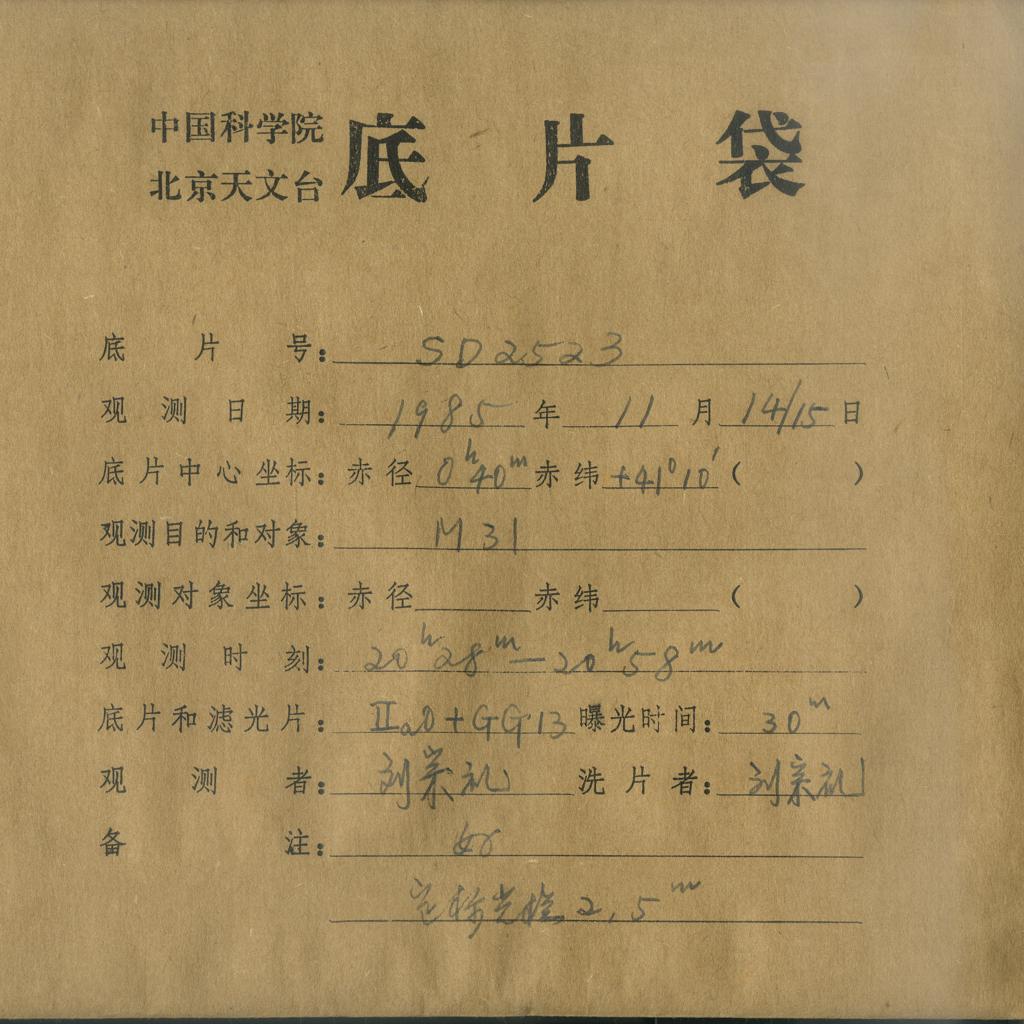 中国科学院
北京天文台 底片袋
底片号: SD2523
观测日期: 1985年11月14/15日
底片中心坐标: 赤径 0h40m 赤纬 +41°10′ ( )
观测目的和对象: M31
观测对象坐标: 赤径 赤纬 ( )
观测时刻: 20h28m—20h58m
底片和滤光片: IIaO+GG13 曝光时间: 30m
观测者: 刘宗礼 洗片者: 刘宗礼
备注: 好
定标光楔 2.5m